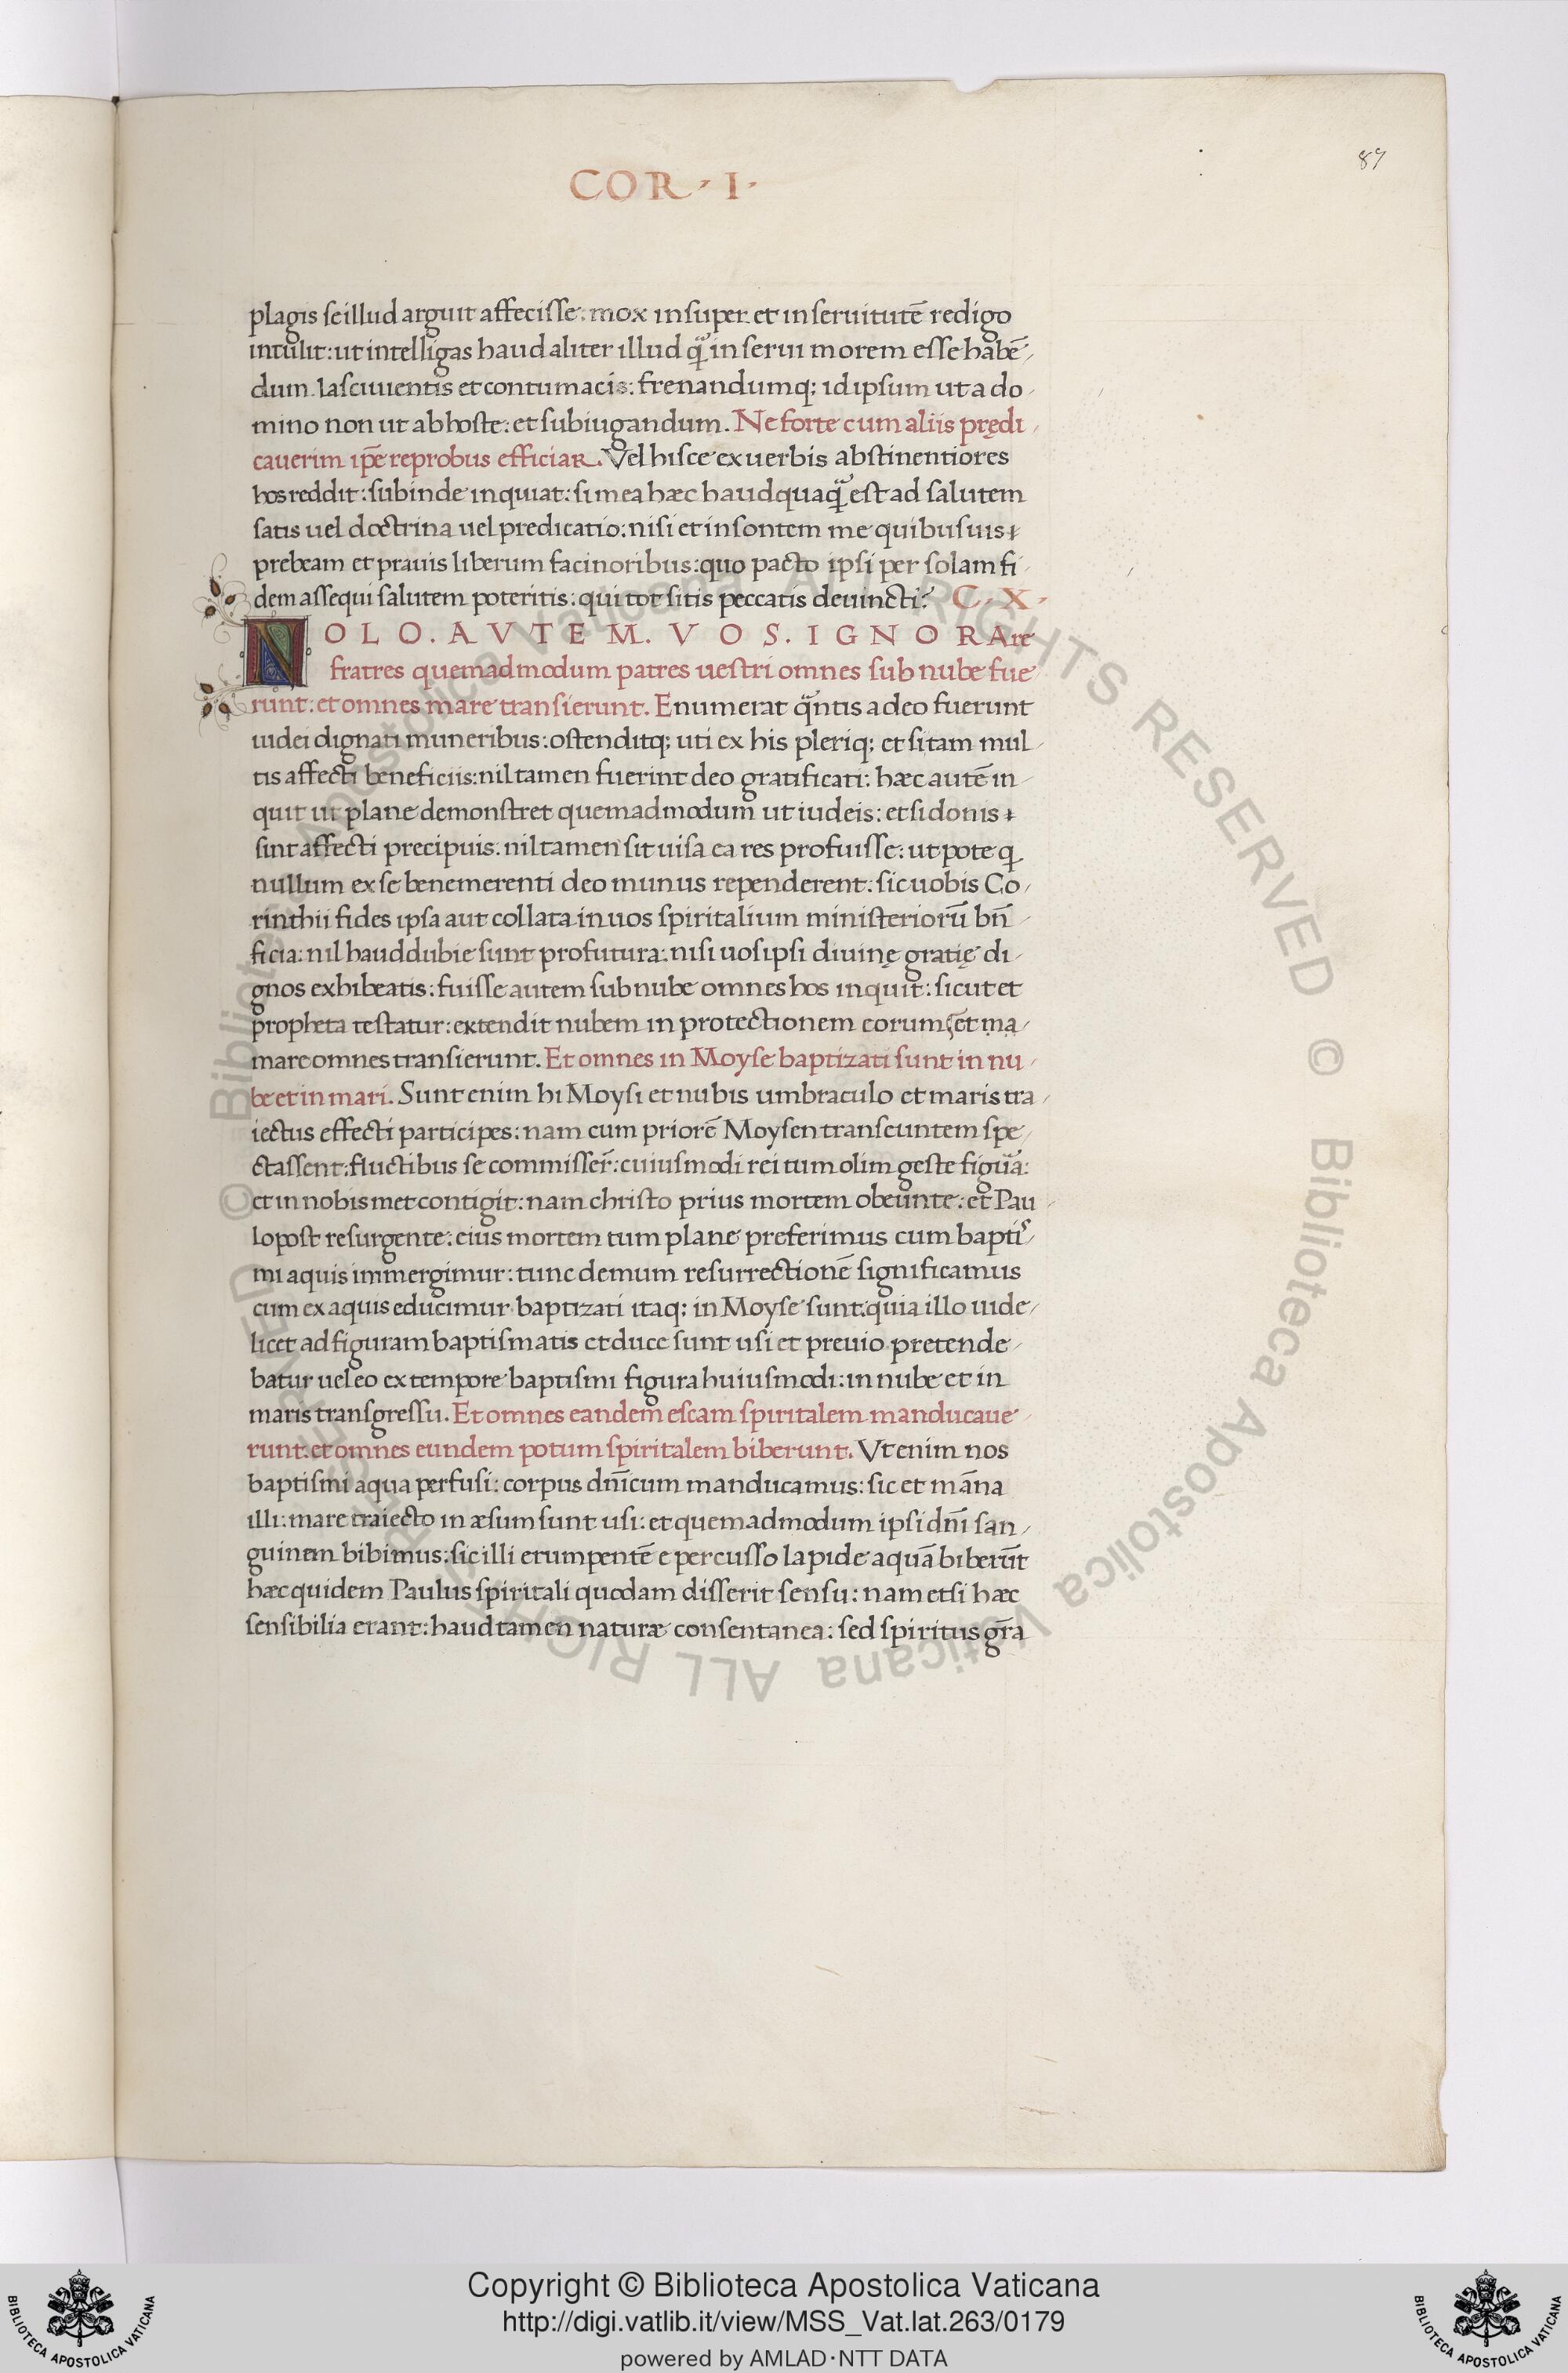 87
COR · I ·
plagis se illud arguit affecisse: mox insuper et in seruitutē redigo
intulit: ut intelligas haud aliter illud q̃ in serui morem esse habē
dum lasciuientis et contumacis: frenandumq; id ipsum ut a do
mino non ut ab hoste: et subiugandum. Ne forte cum aliis prędi
cauerim ip̄e reprobus efficiar. Vel hisce ex uerbis abstinentiores
hos reddit: subinde inquiat: si mea hæc haudquaq̃ est ad salutem
satis uel doctrina uel predicatio: nisi et insontem me quibusuis
prebeam et prauis liberum facinoribus: quo pacto ipsi per solam fi
dem assequi salutem poteritis: qui tot sitis peccatis deuincti? C · X ·
NOLO. AVTEM. VOS. IGNORAre
fratres quemadmodum patres uestri omnes sub nube fue
runt: et omnes mare transierunt. Enumerat q̃ntis adeo fuerunt
iudei dignati muneribus: ostenditq; uti ex his pleriq; et si tam mul
tis affecti beneficiis: nil tamen fuerint deo gratificati: hæc autē in
quit ut plane demonstret quemadmodum ut iudeis: et si donis
sint affecti precipuis. nil tamen sit uisa ea res profuisse: ut pote q
nullum ex se benemerenti deo munus rependerent: sic uobis Co
rinthii fides ipsa aut collata in uos spiritalium ministeriorū bn̄
ficia: nil haud dubie sunt profutura: nisi uos ipsi diuinę gratię di
gnos exhibeatis: fuisse autem sub nube omnes hos inquit: sicut et
propheta testatur: extendit nubem in protectionem eorum et ma
mare omnes transierunt. Et omnes in Moyse baptizati sunt in nu
be et in mari. Sunt enim hi Moysi et nubis umbraculo et maris tra
iectus effecti participes: nam cum priorē Moysen transeuntem spe
ctassent: fluctibus se commiser̄: cuiusmodi rei tum olim geste figu̅a:
et in nobismet contigit: nam christo prius mortem obeunte: et Pau
lo post resurgente: eius mortem tum plane preferimus cum baptis
mi aquis immergimur: tunc demum resurrectionē significamus
cum ex aquis educimur baptizati itaq; in Moyse sunt: quia illo uide
licet ad figuram baptismatis et duce sunt usi et preuio pretende
batur uel eo ex tempore baptismi figura huiusmodi: in nube et in
maris transgressu. Et omnes eandem escam spiritalem manducaue
runt: et omnes eundem potum spiritalem biberunt. Vt enim nos
baptismi aqua perfusi: corpus dn̄icum manducamus: sic et māna
illi: mare traiecto in æsum sunt usi: et quemadmodum ipsi dn̄i san
guinem bibimus: sic illi erumpentē e percusso lapide aquā biberūt
hæc quidem Paulus spiritali quodam disserit sensu: nam etsi hæc
sensibilia erant: haud tamen naturæ consentanea: sed spiritus gr̄a
© Biblioteca Apostolica Vaticana ALL RIGHTS RESERVED © Biblioteca Apostolica Vaticana ALL RIGHTS RESERVED
Copyright © Biblioteca Apostolica Vaticana
http://digi.vatlib.it/view/MSS_Vat.lat.263/0179
powered by AMLAD·NTT DATA
BIBLIOTECA APOSTOLICA VATICANA
BIBLIOTECA APOSTOLICA VATICANA